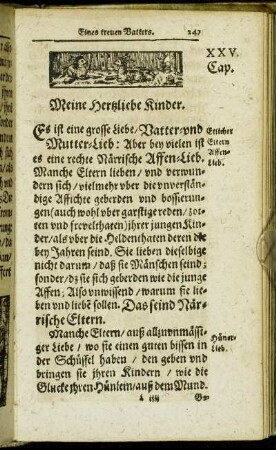 Eines treuen Vatters. 247
XXV.
Cap.
Meine Hertzliebe Kinder.
Es ist eine grosse Liebe/ Vatter- vnd
Mutter-Lieb: Aber bey vielen ist
es eine rechte Närrische Affen-Lieb.
Etlicher
Eltern
Affen-
Lieb.
Manche Eltern lieben/ vnd verwun-
dern sich/ vielmehr vber die vnverstän-
dige Affichte geberden vnd bossierun-
gen (auch wohl vber garstige reden/ zot-
ten vnd frevelthaten) ihrer jungen Kin-
der/ als vber die Heldenthaten deren die
bey Jahren seind. Sie lieben dieselbige
nicht darum/ daß sie Mänschen seind;
sonder/ dz sie sich geberden wie die junge
Affen; Also vnwissend/ warum sie lie-
ben vnd liebē sollen. Das seind När-
rische Eltern.
Manche Eltern/ auß allzuvnmässi-
ger Liebe/ wo sie einen guten bissen in
der Schüssel haben/ den geben vnd
bringen sie ihren Kindern/ wie die
Glucke jhren Hünlein/ auß dem Mund.
Hüner-
Lieb.